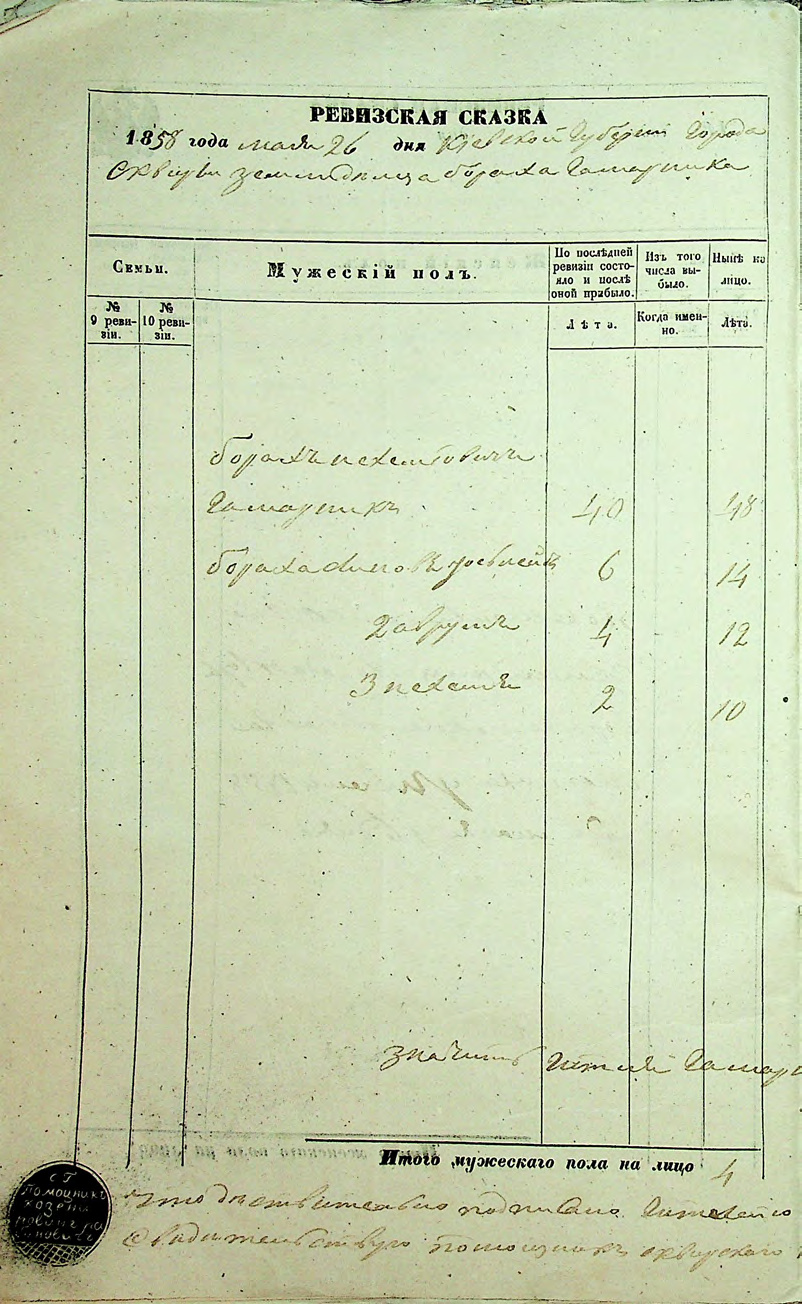 РЕВИЗСКАЯ СКАЗКА
1858 года мая 26 дня Кіевской Губерніи Города
Сквиры землидельца бораха Гамарника
Семьи.
Мужескій полъ.
По послѣдней ревизіи состояло и послѣ оной прибыло.
Изъ того числа выбыло.
Нынѣ на лицо.
№ 9 ревизіи.
№ 10 ревизіи.
Лѣта.
Когда именно.
Лѣта.
борахъ
Гамарникъ 40 48
бораха 6 14
2 4 12
3 2 10
значитъ
Итого мужескаго пола на лицо 4
что действительно подписано
Свидительствую помощникъ сквирского
помощникъ